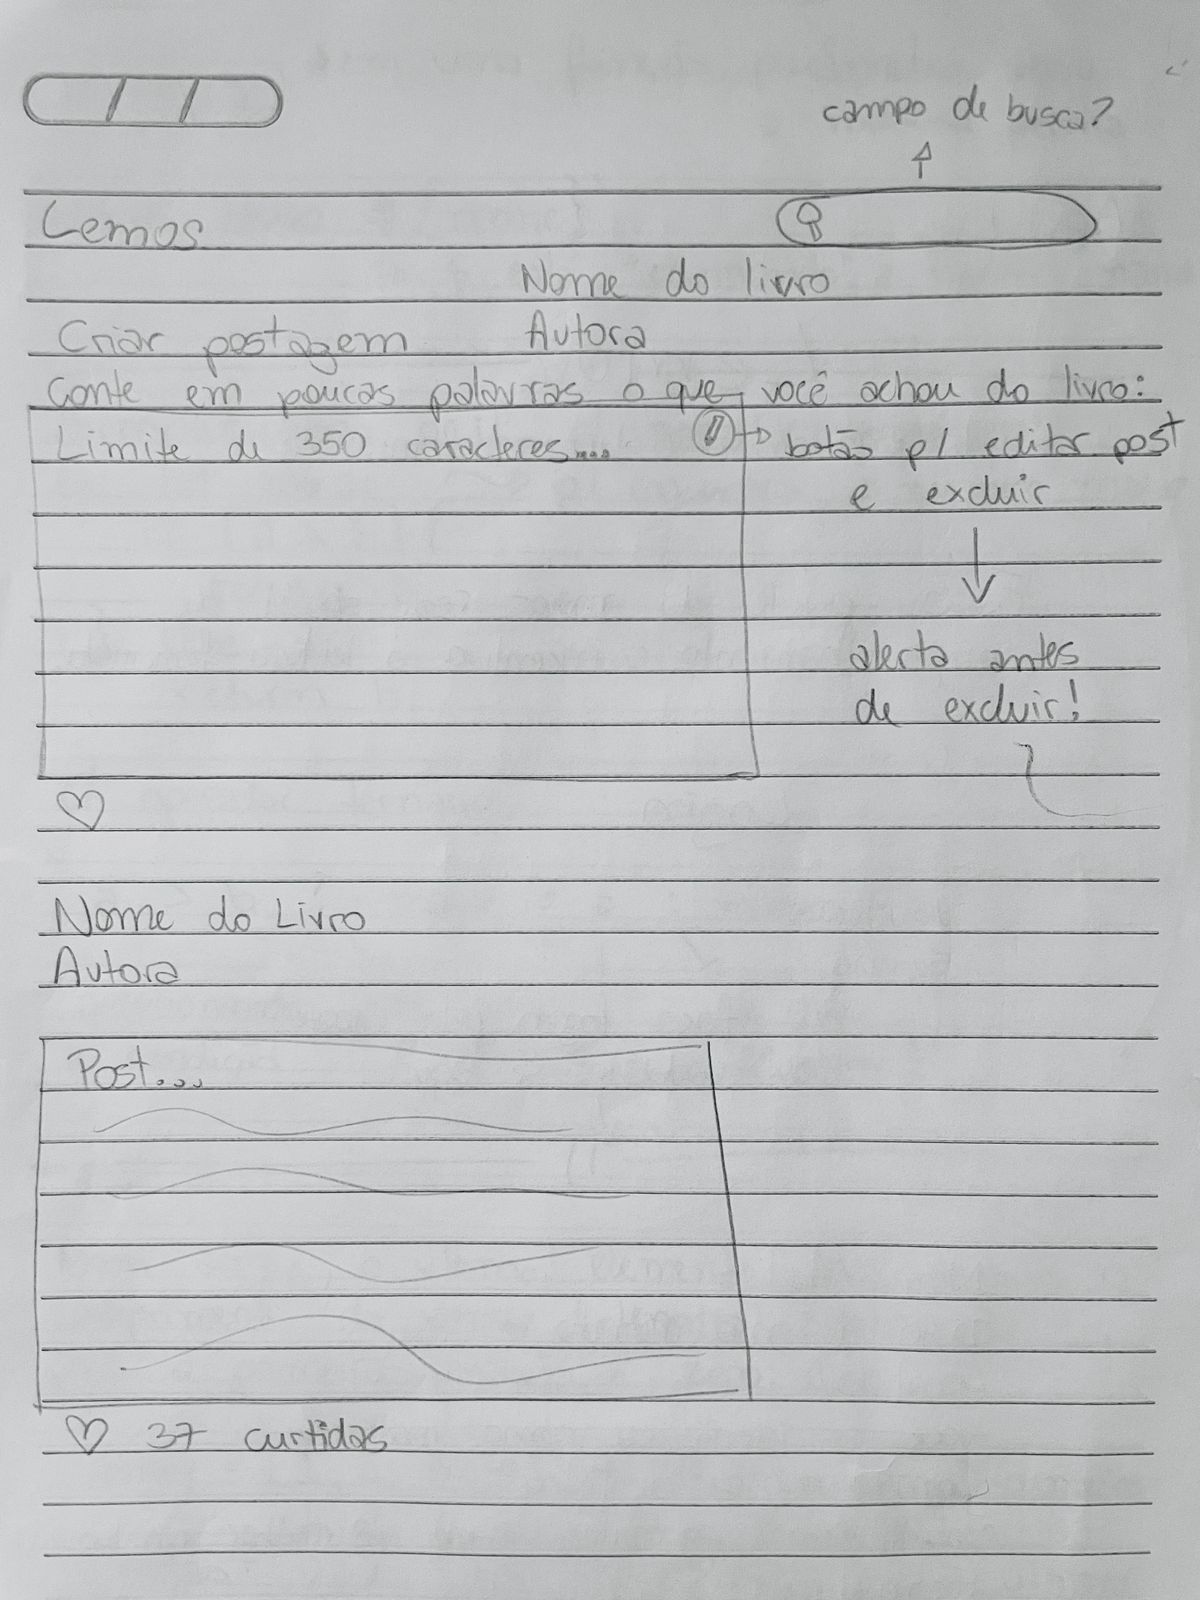 campo de busca?
Lemos
Nome do livro
Criar postagem Autora
Conte em poucas palavras o que você achou do livro:
Limite de 350 caracteres... botão p/ editar post
e excluir
alerta antes
de excluir!
Nome do Livro
Autora
Post...
37 curtidas